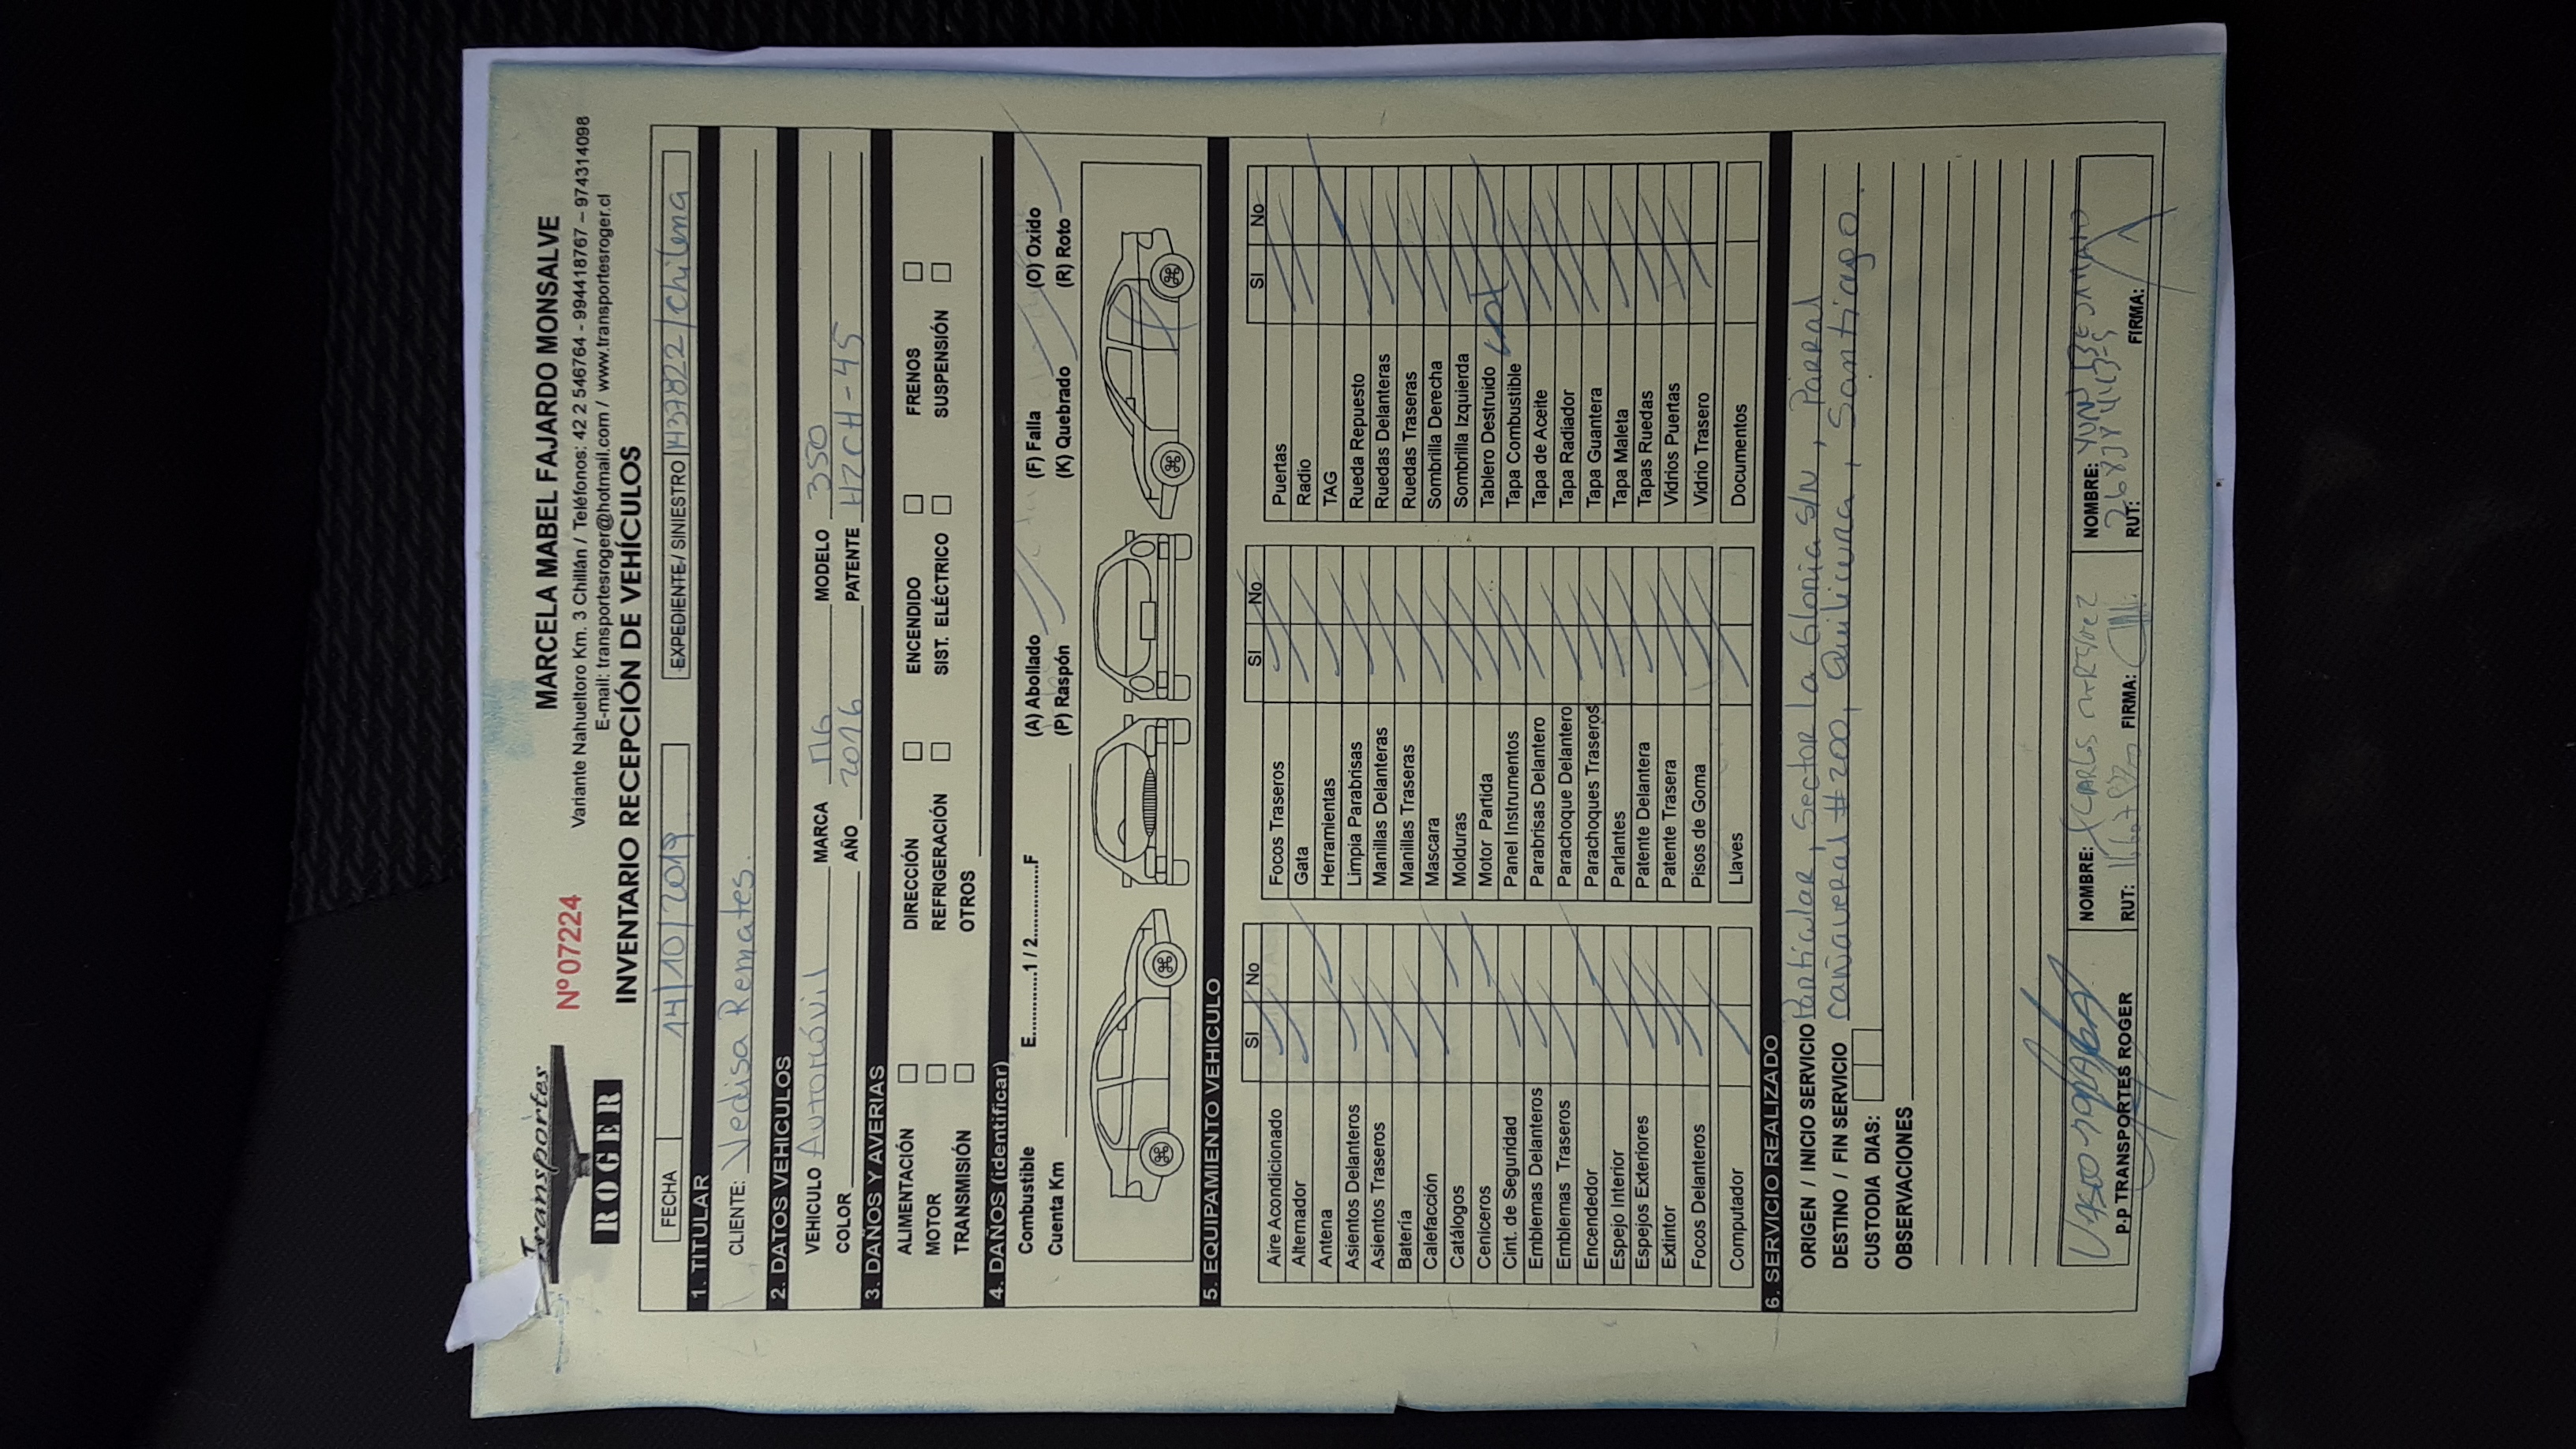 Transportes
ROGER
Nº 07224
MARCELA MABEL FAJARDO MONSALVE
Variante Nahueltoro Km. 3 Chillán / Teléfonos: 42 2 546764 - 994418767 – 974314098
E-mail: transportesroger@hotmail.com / www.transportesroger.cl
INVENTARIO RECEPCIÓN DE VEHÍCULOS
FECHA 14/10/2019 EXPEDIENTE / SINIESTRO 1437822/Chilena
1. TITULAR
CLIENTE: Vedisa Remates.
2. DATOS VEHICULOS
VEHICULO Automóvil MARCA MG MODELO 350
COLOR AÑO 2016 PATENTE HZCH-45
3. DAÑOS Y AVERIAS
ALIMENTACIÓN DIRECCIÓN ENCENDIDO FRENOS
MOTOR REFRIGERACIÓN SIST. ELÉCTRICO SUSPENSIÓN
TRANSMISIÓN OTROS
4. DAÑOS (identificar)
Combustible E............1 / 2...............F (A) Abollado (F) Falla (O) Oxido
Cuenta Km (P) Raspón (K) Quebrado (R) Roto
5. EQUIPAMIENTO VEHICULO
SI No SI No SI No
Aire Acondicionado Focos Traseros Puertas
Alternador Gata Radio
Antena Herramientas TAG
Asientos Delanteros Limpia Parabrisas Rueda Repuesto
Asientos Traseros Manillas Delanteras Ruedas Delanteras
Batería Manillas Traseras Ruedas Traseras
Calefacción Mascara Sombrilla Derecha
Catálogos Molduras Sombrilla Izquierda
Ceniceros Motor Partida Tablero Destruido
Cint. de Seguridad Panel Instrumentos Tapa Combustible
Emblemas Delanteros Parabrisas Delantero Tapa de Aceite
Emblemas Traseros Parachoque Delantero Tapa Radiador
Encendedor Parachoques Traseros Tapa Guantera
Espejo Interior Parlantes Tapa Maleta
Espejos Exteriores Patente Delantera Tapas Ruedas
Extintor Patente Trasera Vidrios Puertas
Focos Delanteros Pisos de Goma Vidrio Trasero
Computador Llaves Documentos
6. SERVICIO REALIZADO
ORIGEN / INICIO SERVICIO Particular, Sector La Gloria S/N, Parral
DESTINO / FIN SERVICIO Cañaveral #200, Quilicura, Santiago.
CUSTODIA DIAS:
OBSERVACIONES
NOMBRE: CARLOS NOMBRE:
P.p TRANSPORTES ROGER RUT: FIRMA: RUT: FIRMA: